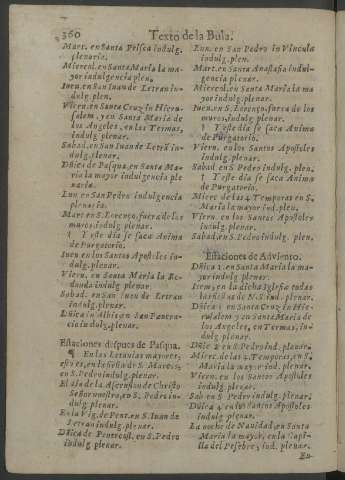 360 Texto de la Bula.
Mart. en Santa Prisca indulg.
plenaria.
Miercol. en Santa Maria la ma
yor indulgencia plen.
Iueu. en San Iuan de Letran in-
dulg. plen.
Viern. en Santa Cruz in Hieru-
salem, y en Santa Maria de
los Angeles, en las Termas,
indulg. plenar.
Sabad. en San Iuan de Letrā in-
dulg. plenar.
Dñica de Pasqua, en Santa Ma-
ria la mayor indulgencia ple
naria.
Lun. en San Pedro indulgencia
plenaria.
Mart. en S. Lorenço, fuera de los
muros indulg. plenar.
¶ Y este dia se saca Anima
de Purgatorio.
Iueu. en los Santos Apostoles in-
dulg. plenar.
Viern. en Santa Maria la Re-
donda indulg. plenar.
Sabad. en San Iuan de Letran
indulg. plenar.
Dñica in Albis en San Pancra-
cio indulg. plenar.
Estaciones despues de Pasqua.
¶ En las Letanias mayores,
esto es, en la fiesta de S. Marcos,
en S. Pedro indulg. plenar.
El dia de la Ascension de Christo
Señor nuestro, en S. Pedro in-
dulg. plenar.
En la Vig. de Pent. en S. Iuan de
Letran indulg. plenar.
Dñica de Pentecost. en S. Pedro
indulg. plenar.
Lun. en San Pedro in Vincula
indulg. plen.
Mart. en Santa Anastasia indul-
gencia plenar.
Miercol. en Santa Maria la ma-
yor indulg. plenar.
Iueu. en S. Lorenço, fuera de los
muros, indulg. plenar.
¶ Y este dia se saca Anima
de Purgatorio.
Viern. en los Santos Apostoles
indulg. plenar.
Sabad. en S. Pedro indulg. plen.
¶ Y este dia se saca Anima
de Purgatorio.
Mierc. de las 4 Temporas en S.
Maria la mayor ind. plen.
Viern. en los Santos Apostoles
indulg. plenar.
Sabad. en S. Pedro indulg. plen.
Estaciones de Aduiento.
Dñica 1. en Santa Maria la ma-
yor indulg. plenar.
Item, en la dicha Iglesia todas
las fiestas de N. S. ind. plenar.
Dñica 2 en Santa Cruz in Hie-
rusalem y en Santa Maria de
los Angeles, en Termas, in-
dulg. plenar.
Dñica 3 en S. Pedro ind. plenar.
Mierc. de las 4. Temporas, en S.
Maria la mayor ind. plenar.
Viern. en los Santos Apostoles
indulg. plenar.
Sab. en S. Pedro indulg. plenar.
Dñica 4 en los Santos Apostoles
indulg. plenar.
La noche de Nauidad, en Santa
Maria la mayor, en la Capi-
lla del Pesebre, ind. plenar.
En-